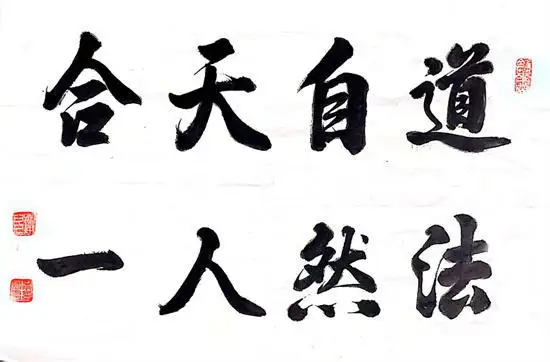 道法
自然
天人
合一